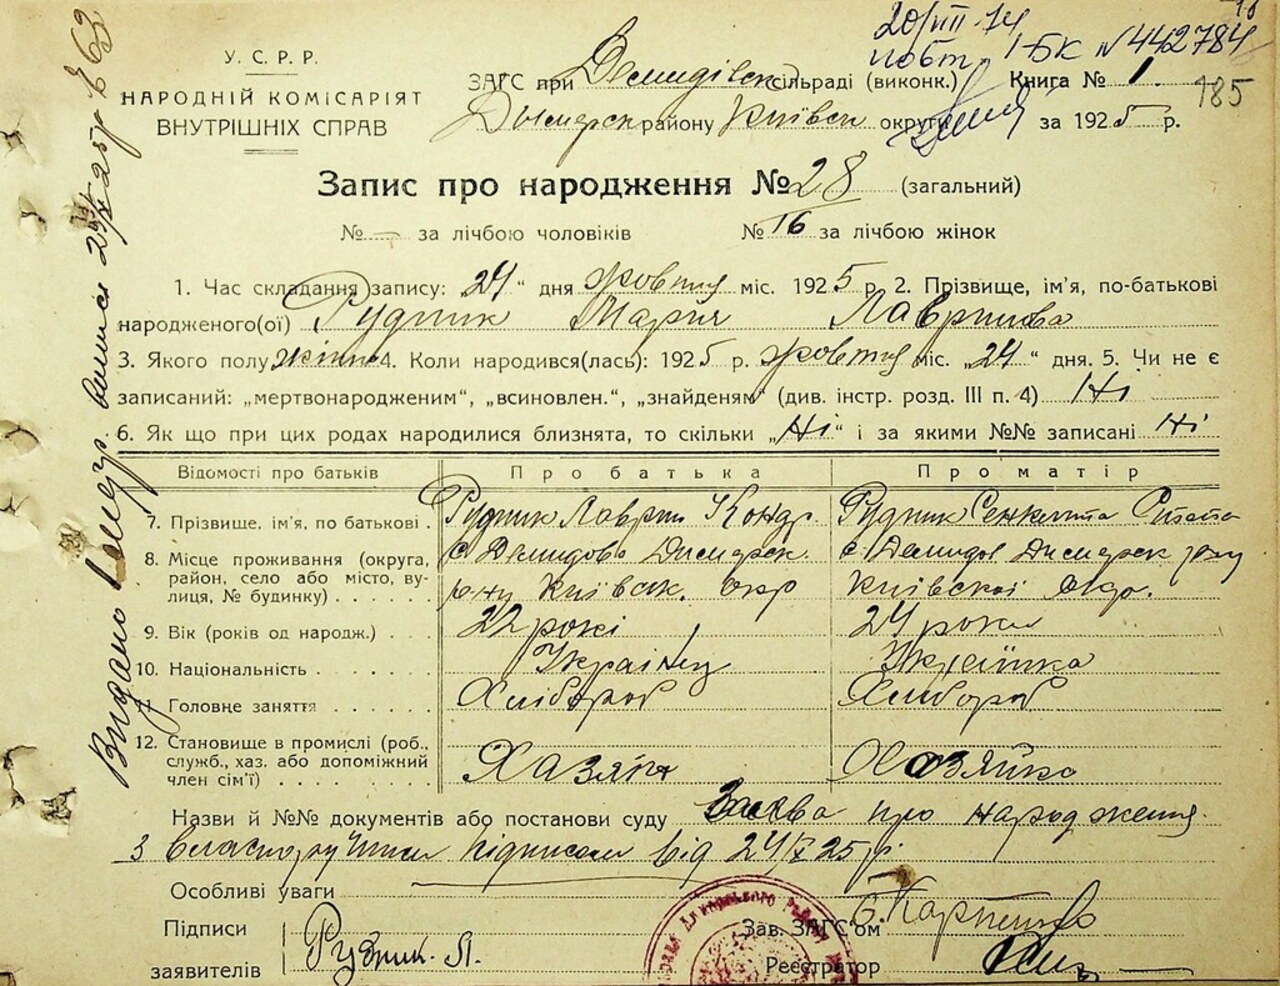 20/VIII 74
повт. І-БК №442784
185
У. С. Р. Р.
НАРОДНІЙ КОМІСАРІЯТ
ВНУТРІШНІХ СПРАВ
ЗАГС при Демидівск. сільраді (виконк.) Книга № 1.
Дымерск району Київск округи за 1925 р.
Запис про народження № 28 (загальний)
№ — за лічбою чоловіків № 16 за лічбою жінок
1. Час складання запису: „24“ дня жовтня міс. 1925 р. 2. Прізвище, ім'я, по-батькові
народженого(ої) Рудник Мария Лаврінова
3. Якого полу жіноч 4. Коли народився(лась): 1925 р. жовтня міс. „24“ дня. 5. Чи не є
записаний: „мертвонародженим“, „всиновлен.“, „знайденям“ (див. інстр. розд. III п. 4) Ні
6. Як що при цих родах народилися близнята, то скільки „Ні“ і за якими №№ записані Ні
Відомості про батьків Про батька Про матір
7. Прізвище, ім'я, по батькові . Рудник Лаврін Кондр. Рудник
8. Місце проживання (округа, с. Демидово Димерск. с. Демидов Димерск
район, село або місто, ву-
лиця, № будинку) . . . . . . р-ну Київск. окр Київскої Окр.
9. Вік (років од народж.) . . . 22 рокі 24 роки
10. Національність . . . . . . Українец Українка
Головне заняття . . . . . . Хлібороб Хлібороб
12. Становище в промислі (роб.,
служб., хаз. або допоміжний
член сім'ї) . . . . . . . . Хазяїн Хозяйка
Назви й №№ документів або постанови суду Заява про народження
з власноручним підписом від 24/X 25 р.
Особливі уваги
Підписи
заявителів Рудник. Л.
Зав. ЗАГС'ом Карпенко
Реєстратор
Видано